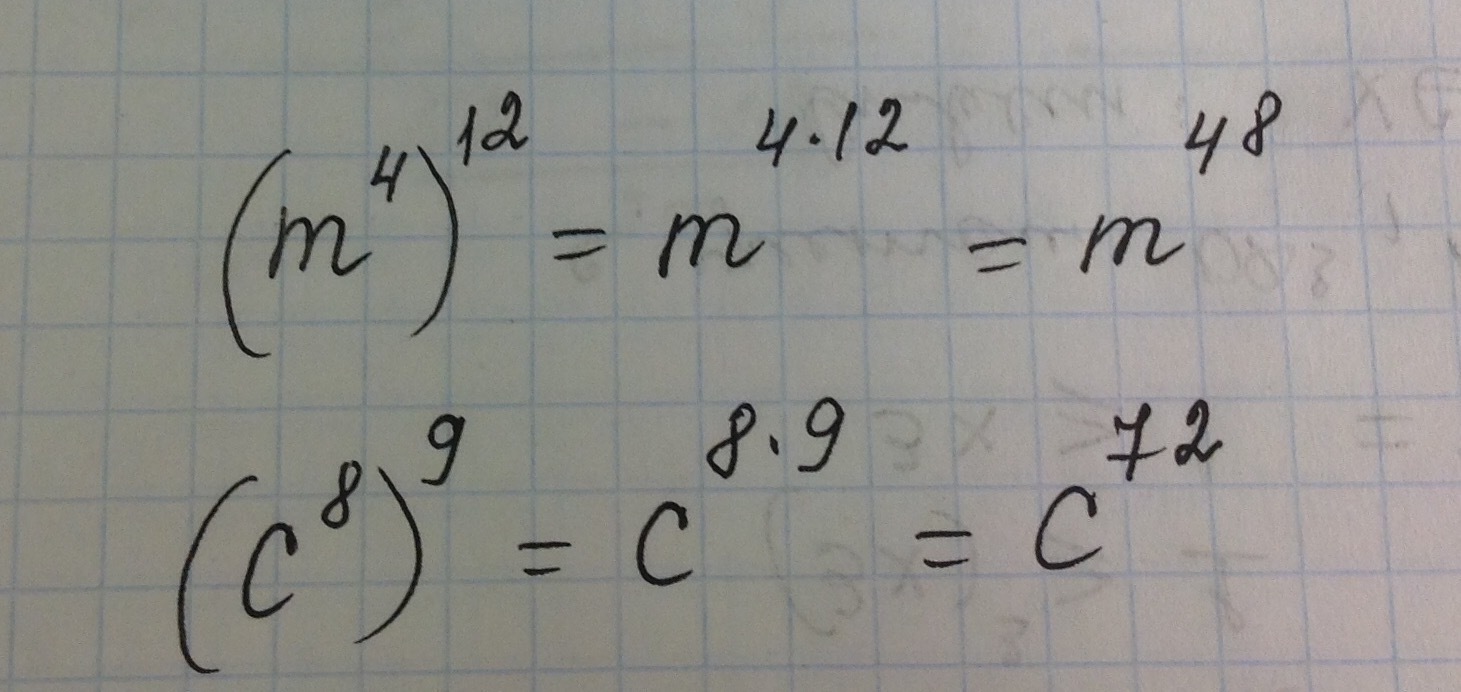 (m⁴)¹² = m⁴·¹² = m⁴⁸
(c⁸)⁹ = c⁸·⁹ = c⁷²